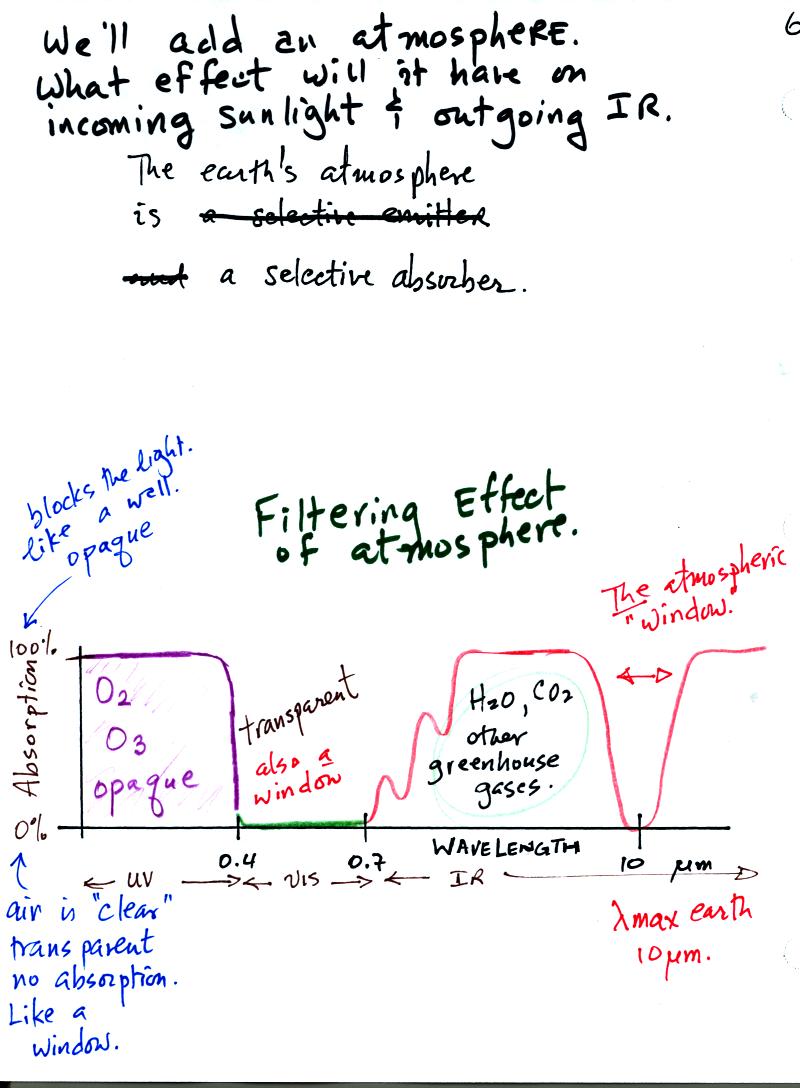 6
We'll add an atmosphere.
What effect will it have on
incoming sunlight & outgoing IR.
The earth's atmosphere
is a selective emitter
and a selective absorber.
blocks the light.
like a well.
opaque
Filtering Effect
of atmosphere.
The atmospheric
"window."
100%
Absorption
0%
O2
O3
opaque
transparent
also a
window
H2O, CO2
other
greenhouse
gases.
WAVELENGTH
0.4
0.7
10 μm
UV
VIS
IR
air is "clear"
transparent
no absorption.
Like a
window.
λmax earth
10 μm.